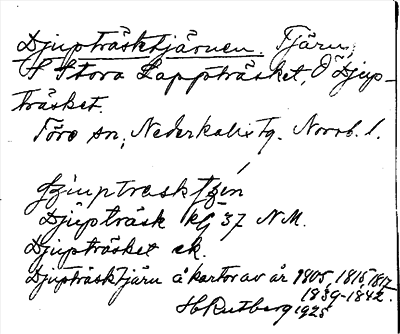 Djupträsktjärnen. Tjärn,
S Stora Lappträsket, O Djup-
träsket.
Töre sn, Nederkalix Tg. Norrb. l.
Djupträsk kg 37 N.M.
Djupträsket ek.
Djupträsktjärn å kartor av år 1805, 1815, 1817
1839-1842.
H Rutberg 1925